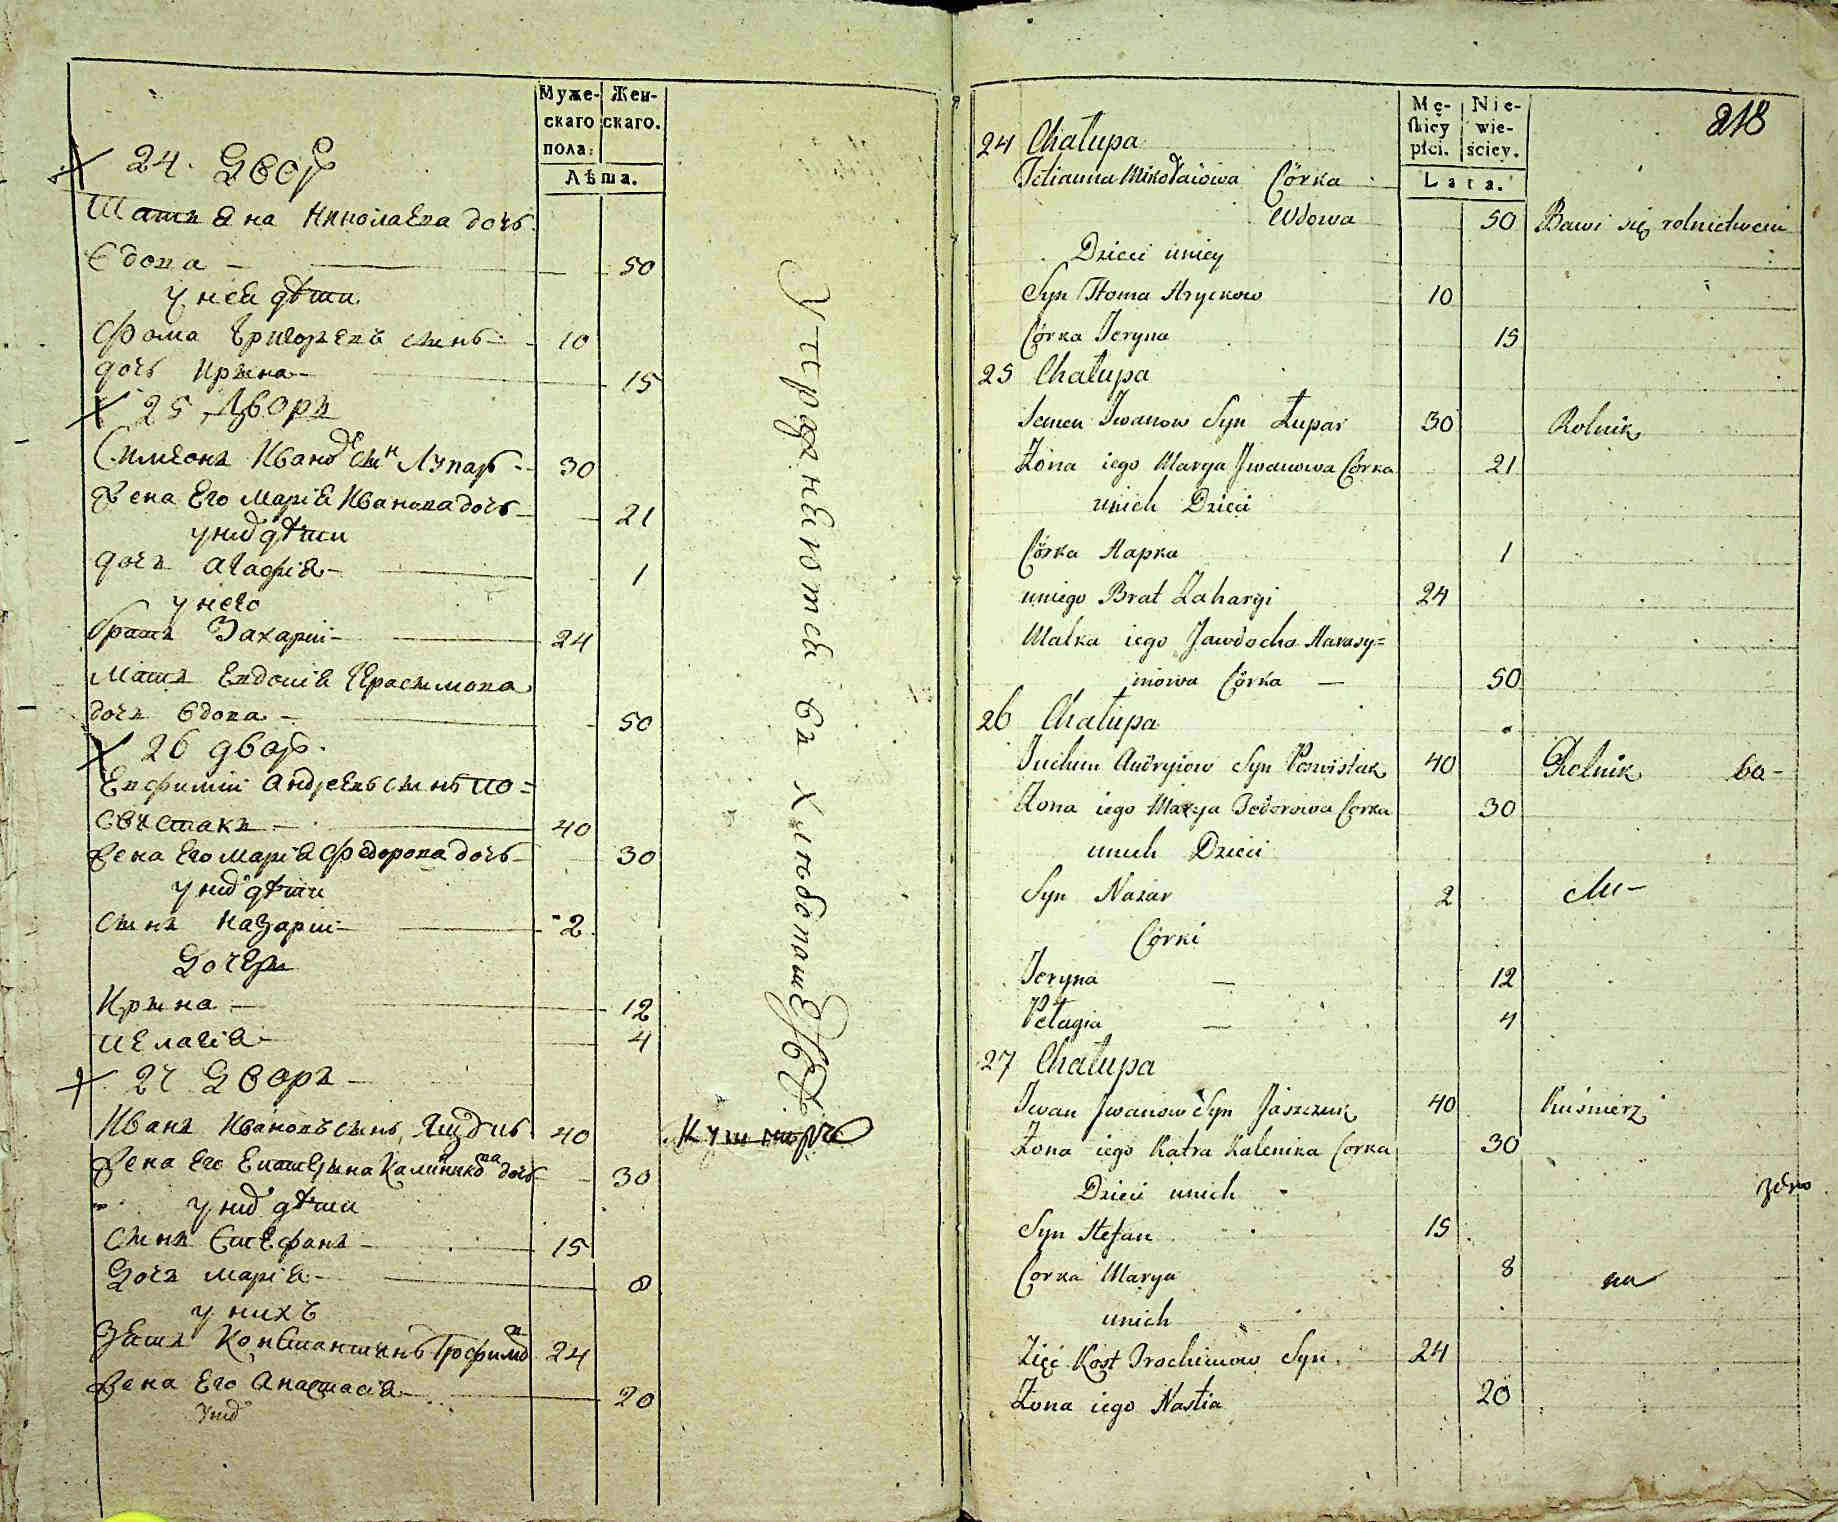 Муже-
скаго
пола.
Жен-
скаго.
Лѣта.
24. Двор
Татiяна Николаева дочь
вдова 50
у ней дѣти
Фома Григорьевъ сынъ 10
дочь Ирына 15
25 Дворъ
Симеонъ Иванов сын Лупарь 30
Жена Его Марiя Иванова дочь 21
у них дѣти
дочь Агафiя 1
у него
братъ Захарiй 24
Мать Евдокiя Герасимова
дочь вдова 50
26 двор.
Евфимiй Андреевъ сынъ По=
свистакъ 40
Жена Его Марiя Федорова дочь 30
у них дѣти
Сынъ Назарiй 2
Дочери
Ирына 12
Пелагiя 4
27 Дворъ
Иванъ Ивановъ сынъ Ящукъ 40
Жена Его Екатерина Калиникова дочь 30
у них дѣти
Сынъ Стефанъ 15
Дочь Марiя 8
у нихъ
Зять Константинъ Трофимов 24
Жена Его Анастасiя 20
у них
Упражняются въ хлѣбопашествѣ
Кушнеръ
218
Mę-
skiey
płci.
Nie-
wie-
ściey.
Lata.
24 Chałupa
Tetianna Mikołaiowa Córka
Wdowa 50 Bawi się rolnictwem
Dzieci uniey
Syn Homa Hryckow 10
Córka Jeryna 15
25 Chałupa
Semen Jwanow Syn Łupar 30 Rolnik
Żona iego Marya Jwanowa Córka 21
unich Dzieci
Córka Hapka 1
uniego Brat Zahargi 24
Matka iego Jawdocha Harasy=
mowa Córka — 50
26 Chałupa
Juchim Andryiow Syn Poswistak 40 Rolnik ba-
Żona iego Marya Fedorowa Corka 30
unich Dzieci
Syn Nazar 2
Córki
Jeryna — 12
Pełagia — 4
27 Chałupa
Jwan Jwanow Syn Jaszczuk 40 Kuśnierz
Żona iego Katra Kalenika Corka 30
Dzieci unich
Syn Stefan 15
Corka Marya 8 на
unich
Zięć Kost Trochimow Syn 24
Żona iego Nastia 20